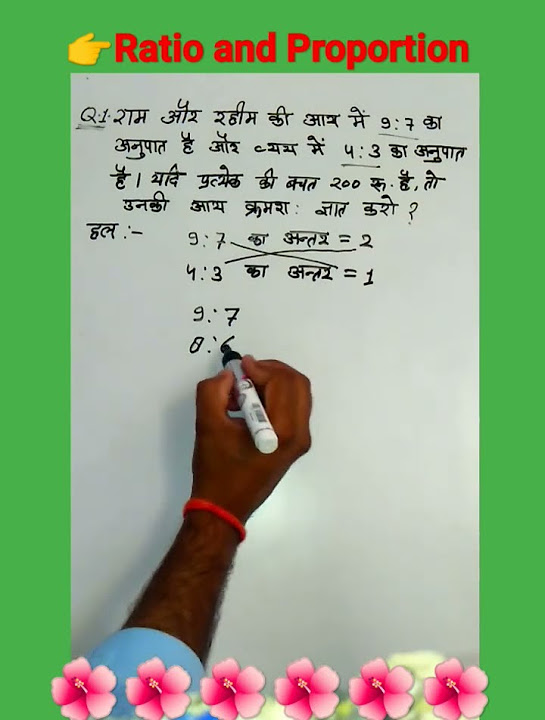 👉Ratio and Proportion
Q.1. राम और रहीम की आय में 9:7 का
अनुपात है और व्यय में 4:3 का अनुपात
है। यदि प्रत्येक की बचत 200 रू. है, तो
उनकी आय क्रमश: ज्ञात करो ?
हल :-
9:7 का अन्तर = 2
4:3 का अन्तर = 1
9:7
8:6